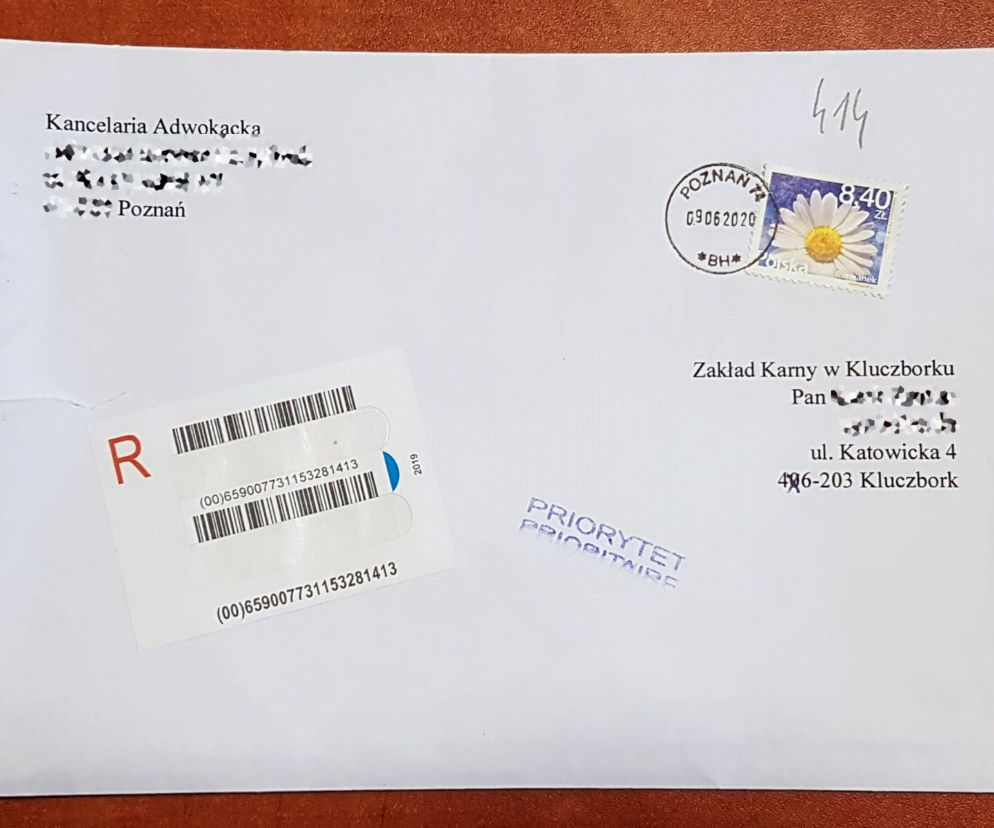 Kancelaria Adwokacka
Poznań
414
POZNAŃ 74
09062020
*BH*
8,40
ZŁ
Polska
Rumianek
Zakład Karny w Kluczborku
Pan
ul. Katowicka 4
46-203 Kluczbork
R
2019
(00)659007731153281413
(00)659007731153281413
PRIORYTET
PRIORITAIRE